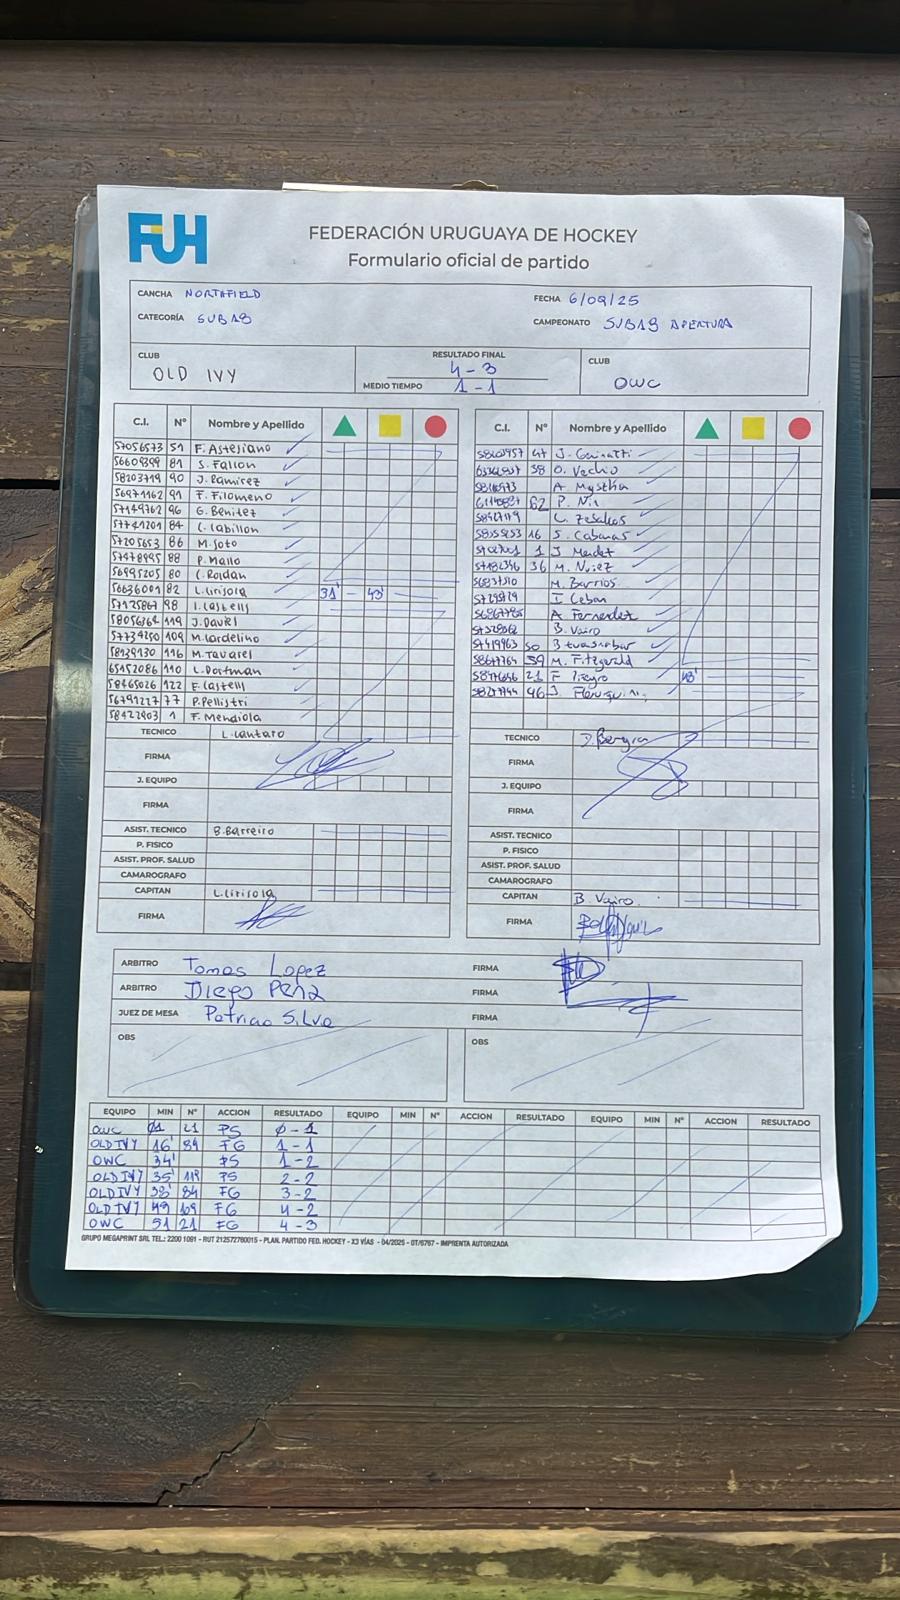 FUH
FEDERACIÓN URUGUAYA DE HOCKEY
Formulario oficial de partido
CANCHA NORTHFIELD
FECHA 6/09/25
CATEGORÍA SUB19
CAMPEONATO SUB19 APERTURA
CLUB OLD IVY
RESULTADO FINAL 4-3
MEDIO TIEMPO 1-1
CLUB OWC
C.I. Nº Nombre y Apellido
57056573 51 F. Astesiano
56609399 81 S. Fallon
58203719 90 J. Ramirez
56971162 91 F. Filomeno
57149762 96 G. Benitez
57741201 84 C. Cabillon
57205653 86 M. Soto
57478995 88 P. Mallo
56995205 80 C. Roldan
56636001 82 L. Cirisola 31' - 43'
57125867 98 I. Castells
58056364 119 J. Daviel
57734250 109 M. Cardelino
58139130 116 M. Tavarel
65152086 110 L. Dortman
58465026 122 F. Castell
56791227 77 P. Pellistri
58422903 1 F. Mendiola
TECNICO L. Cantaro
FIRMA
J. EQUIPO
FIRMA
ASIST. TECNICO B. Barreiro
P. FISICO
ASIST. PROF. SALUD
CAMAROGRAFO
CAPITAN L. Cirisola
FIRMA
C.I. Nº Nombre y Apellido
47 J.
58 O. Vecho
A.
62 P.
C.
16 S. Cabanas
1 J. Mendet
36 M. Nuñez
M. Barrios
I. Ceban
A. Fernandez
B. Vairo
50 B
39 M. Fitzgerald
21 F 48'
46 J.
TECNICO
FIRMA
J. EQUIPO
FIRMA
ASIST. TECNICO
P. FISICO
ASIST. PROF. SALUD
CAMAROGRAFO
CAPITAN B. Vairo
FIRMA
ARBITRO Tomas Lopez FIRMA
ARBITRO Diego Peña FIRMA
JUEZ DE MESA Patricio Silva FIRMA
OBS
OBS
EQUIPO MIN Nº ACCION RESULTADO EQUIPO MIN Nº ACCION RESULTADO EQUIPO MIN Nº ACCION RESULTADO
OWC 01 21 PS 0-1
OLD IVY 16' 84 FG 1-1
OWC 34' PS 1-2
OLD IVY 35' 119 PS 2-2
OLD IVY 38' 84 FG 3-2
OLD IVY 49 109 FG 4-2
OWC 51 21 FG 4-3
GRUPO MEGAPRINT SRL TEL.: 2200 1091 - RUT 212572780015 - PLAN. PARTIDO FED. HOCKEY - X3 VÍAS - 04/2025 - OT/6767 - IMPRENTA AUTORIZADA